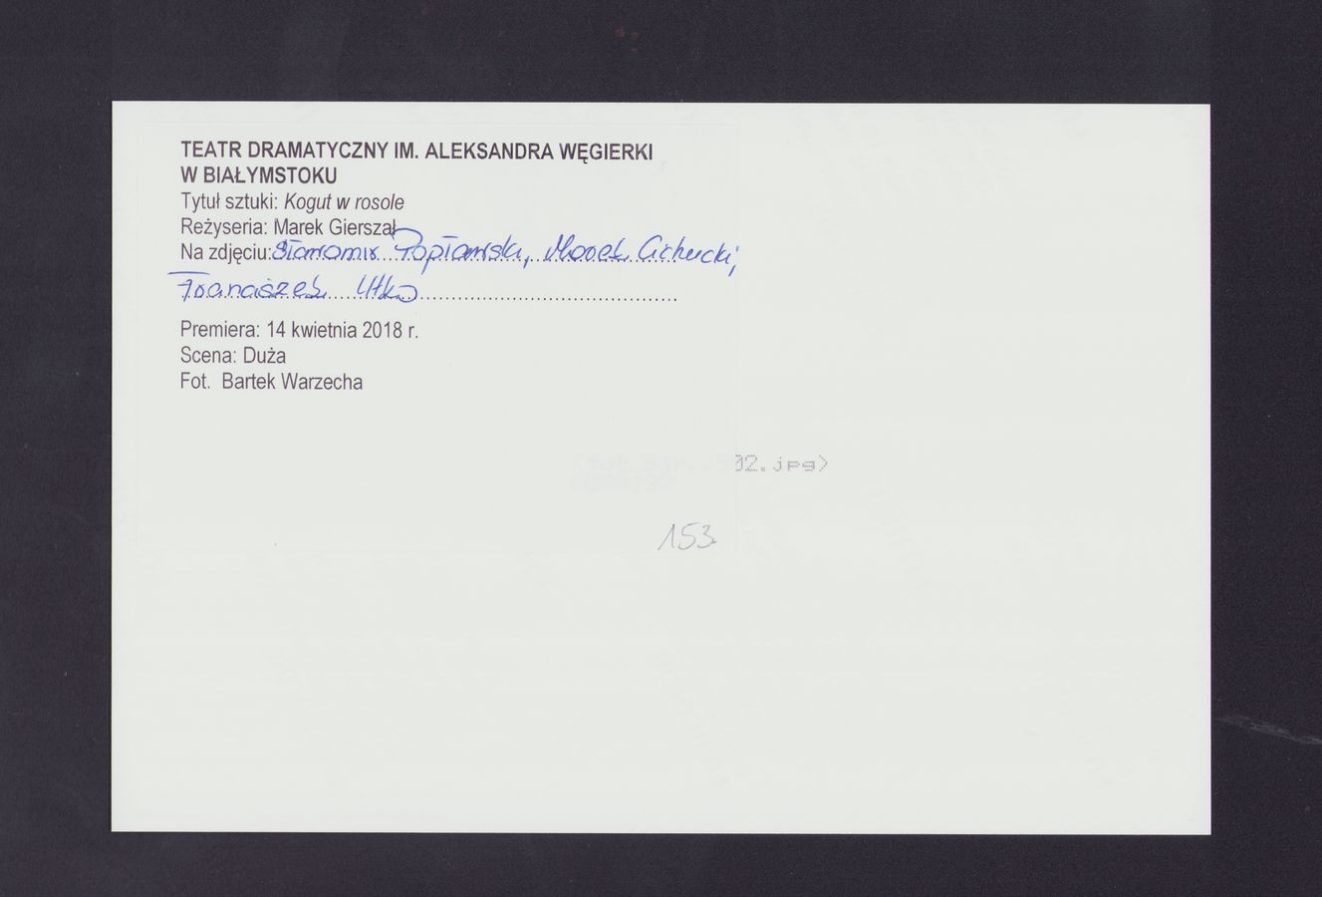 TEATR DRAMATYCZNY IM. ALEKSANDRA WĘGIERKI
W BIAŁYMSTOKU
Tytuł sztuki: Kogut w rosole
Reżyseria: Marek Gierszał
Na zdjęciu: Sławomir Popławski, Marek Cichucki,
Franciszek Utko
Premiera: 14 kwietnia 2018 r.
Scena: Duża
Fot. Bartek Warzecha
02.jpg>
153